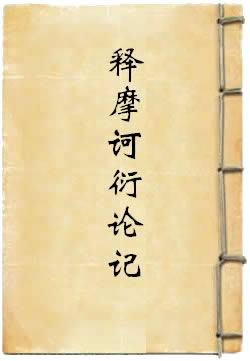 释摩诃衍论记